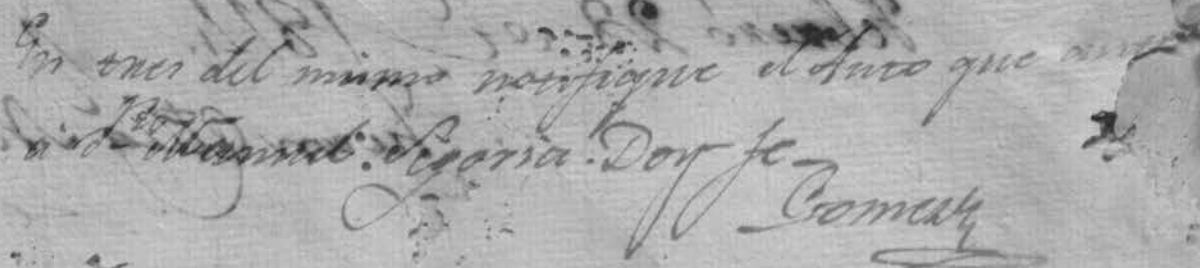 En tres del mismo notifique el Auto que ante
a dn Manuel Segovia. Doy fe
Gomez